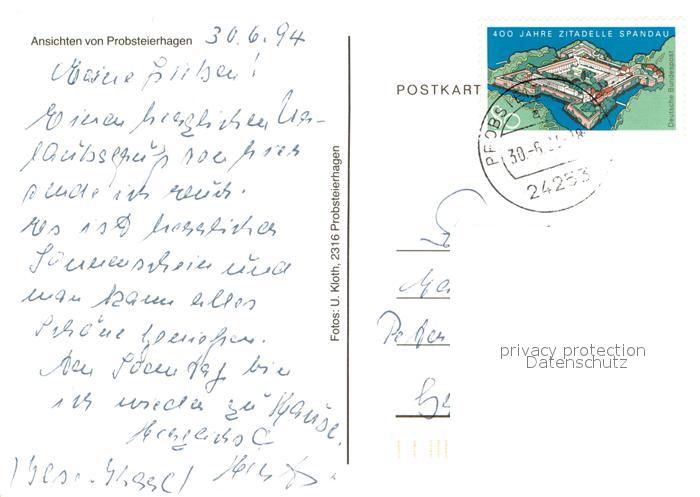 Ansichten von Probsteierhagen 30.6.94
Meine Lieben!
Einen herzlichen Ur-
laubsgruß von hier
sende ich euch.
Es ist herrlicher
Sonnenschein und
man kann alles
Schöne genießen.
Am Sonntag bin
ich wieder zu Hause.
Herzlichst
Fotos: U. Kloth, 2316 Probsteierhagen
POSTKART
400 JAHRE ZITADELLE SPANDAU
Deutsche Bundespost
PROBS
30.-6.
24253
privacy protection
Datenschutz